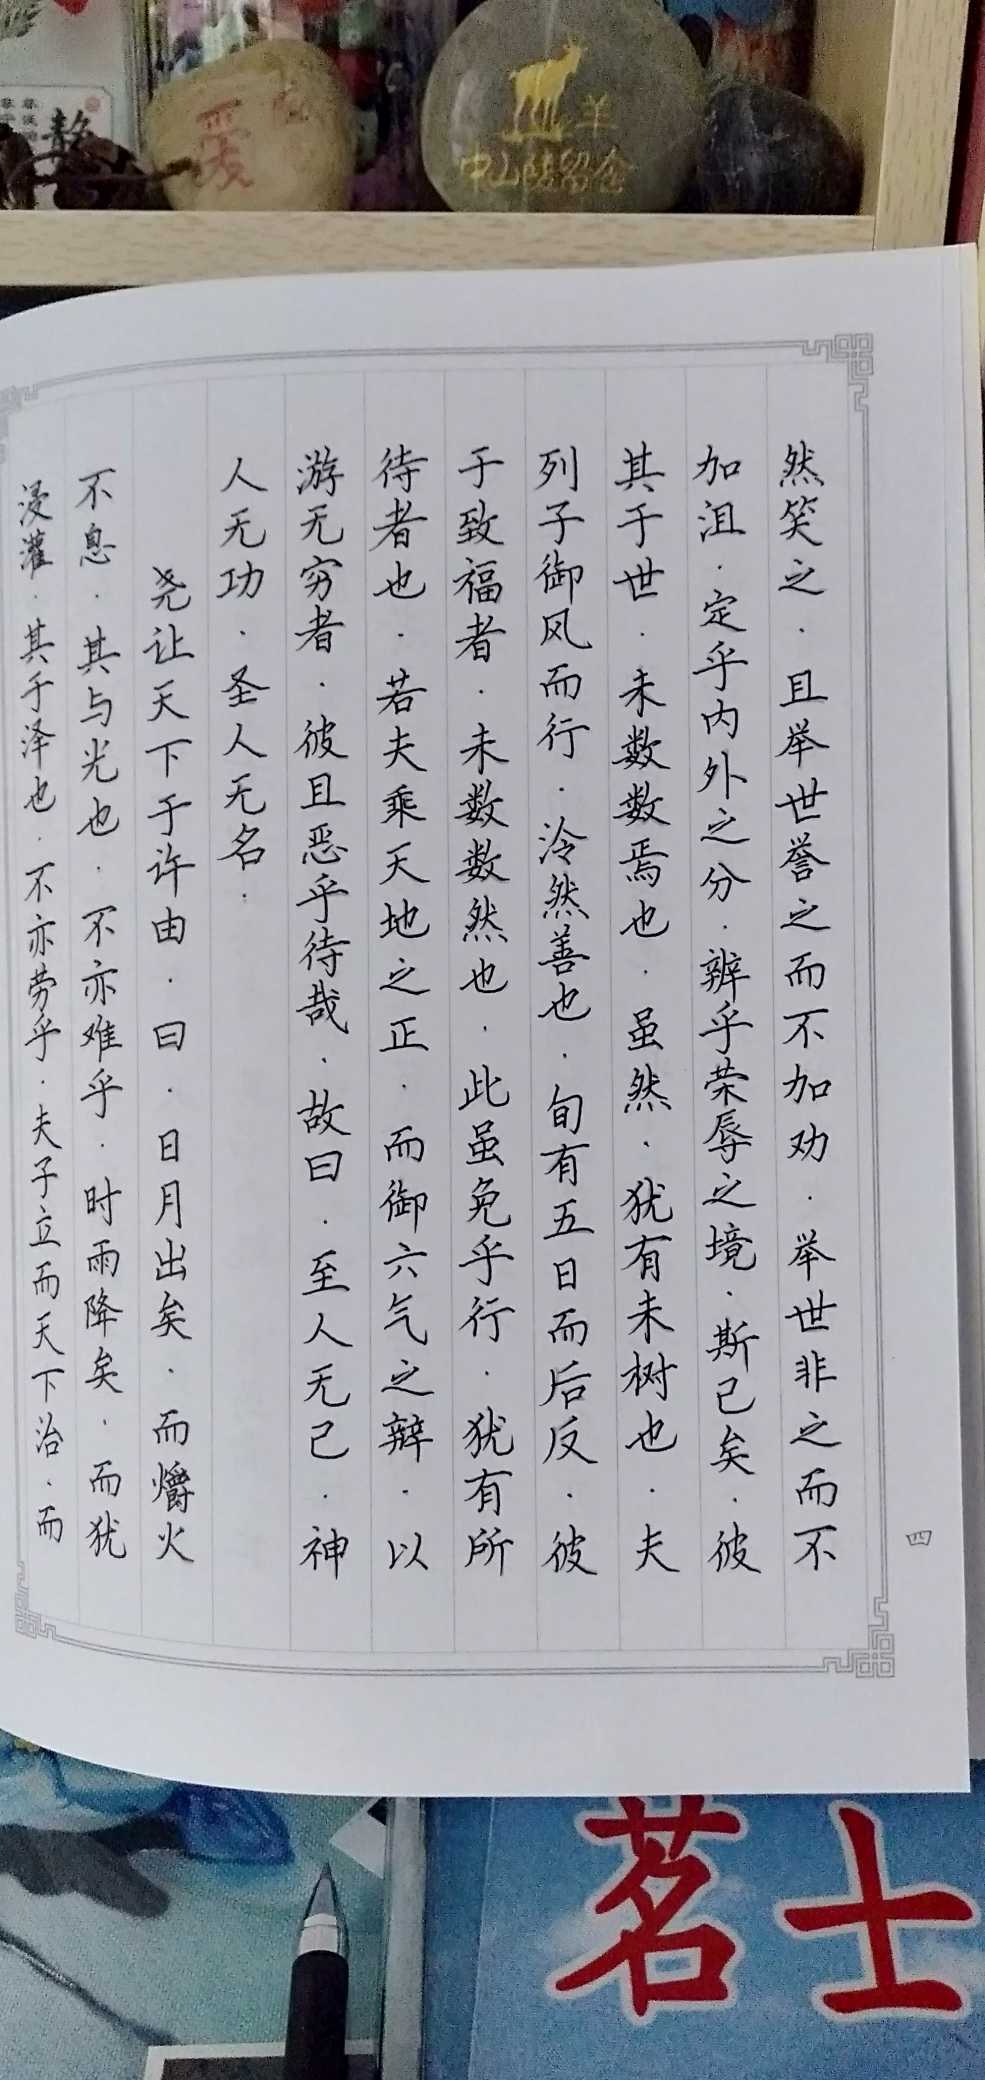 静
爱
羊
中山陵留念
然笑之．且举世誉之而不加劝．举世非之而不
加沮．定乎内外之分．辨乎荣辱之境．斯已矣．彼
其于世．未数数焉也．虽然．犹有未树也．夫
列子御风而行．泠然善也．旬有五日而后反．彼
于致福者．未数数然也．此虽免乎行．犹有所
待者也．若夫乘天地之正．而御六气之辩．以
游无穷者．彼且恶乎待哉．故曰．至人无己．神
人无功．圣人无名．
尧让天下于许由．曰．日月出矣．而爝火
不息．其与光也．不亦难乎．时雨降矣．而犹
浸灌．其于泽也．不亦劳乎．夫子立而天下治．而
四
茗士